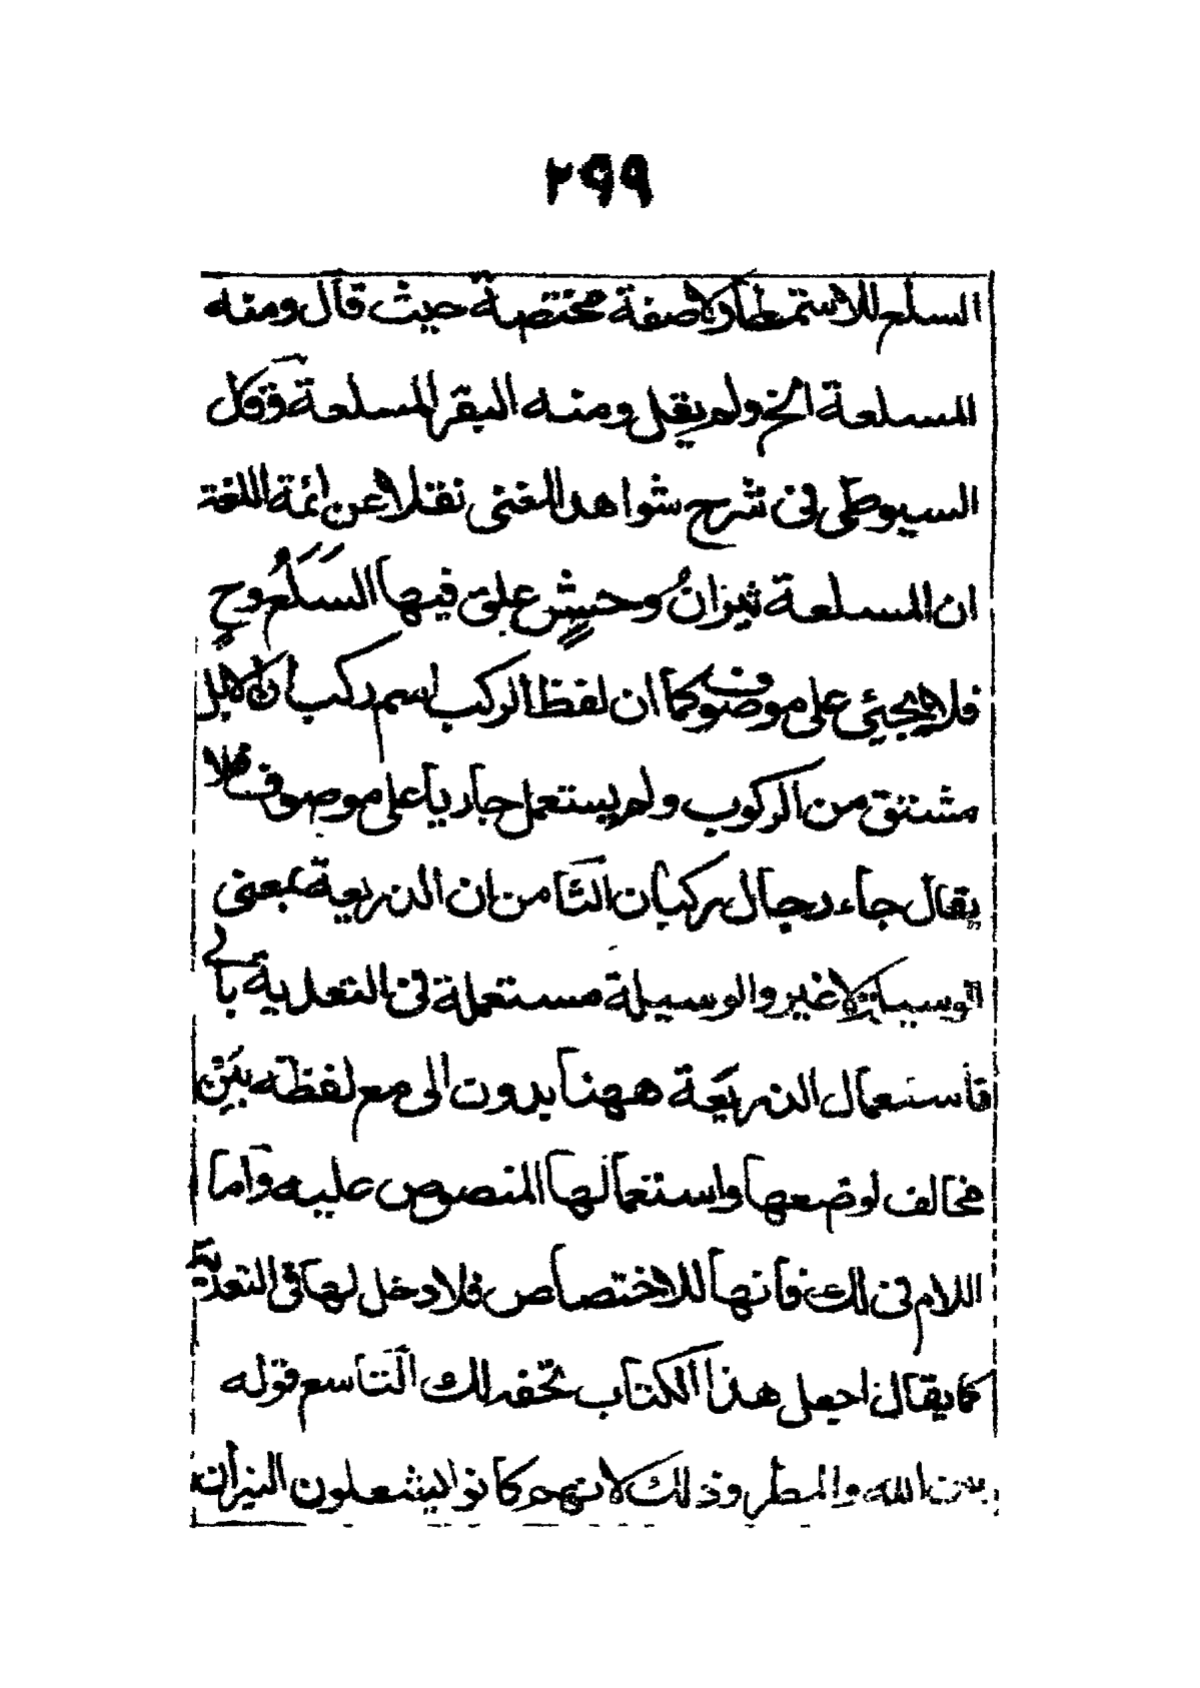 ٢٩٩
السلع للاستمطار لا صفة مختصة حيث قال ومنه
المسلعة الخ ولم يقل ومنه البقر المسلعة وقال
السيوطى فى شرح شواهد المغنى نقلا عن ائمة اللغة
ان المسلعة ثيران وحش علق فيها السلع وح
فلا يجئ على موصوف كما ان لفظ الركب اسم ركبان الابل
مشتق من الركوب ولم يستعمل جاريا على موصوف فلا
يقال جاء رجال ركبان الثامن ان الذريعة بمعنى
الوسيلة لا غير والوسيلة مستعملة فى التعدية بالى
فاستعمال الذريعة ههنا بدون الى مع لفظه بين
مخالف لوضعها واستعمالها المنصوص عليه واما
اللام فى لك فانها للاختصاص فلا دخل لها فى التعدية
كما يقال اجعل هذا الكتاب تحفه لك التاسع قوله
بين الله والمطر وذلك لانهم كانوا يشعلون النيران